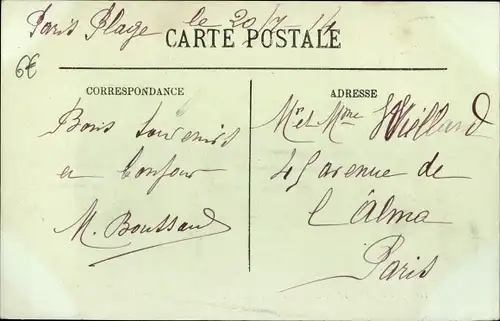 Paris Plage le 20/7 - 14
CARTE POSTALE
6€
CORRESPONDANCE
Bons souvenirs
et bonjour
M. Boussard
ADRESSE
Mr et Mme Wiellard
45 avenue de
l'Alma
Paris